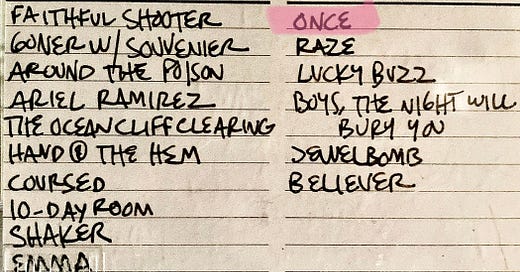 FAITHFUL SHOOTER
GONER W/ SOUVENIER
AROUND THE POISON
ARIEL RAMIREZ
THE OCEANCLIFFCLEARING
HAND @ THE HEM
COURSED
10-DAY ROOM
SHAKER
EMMA
ONCE
RAZE
LUCKY BUZZ
BOYS, THE NIGHT WILL
BURY YOU
JEWELBOMB
BELIEVER